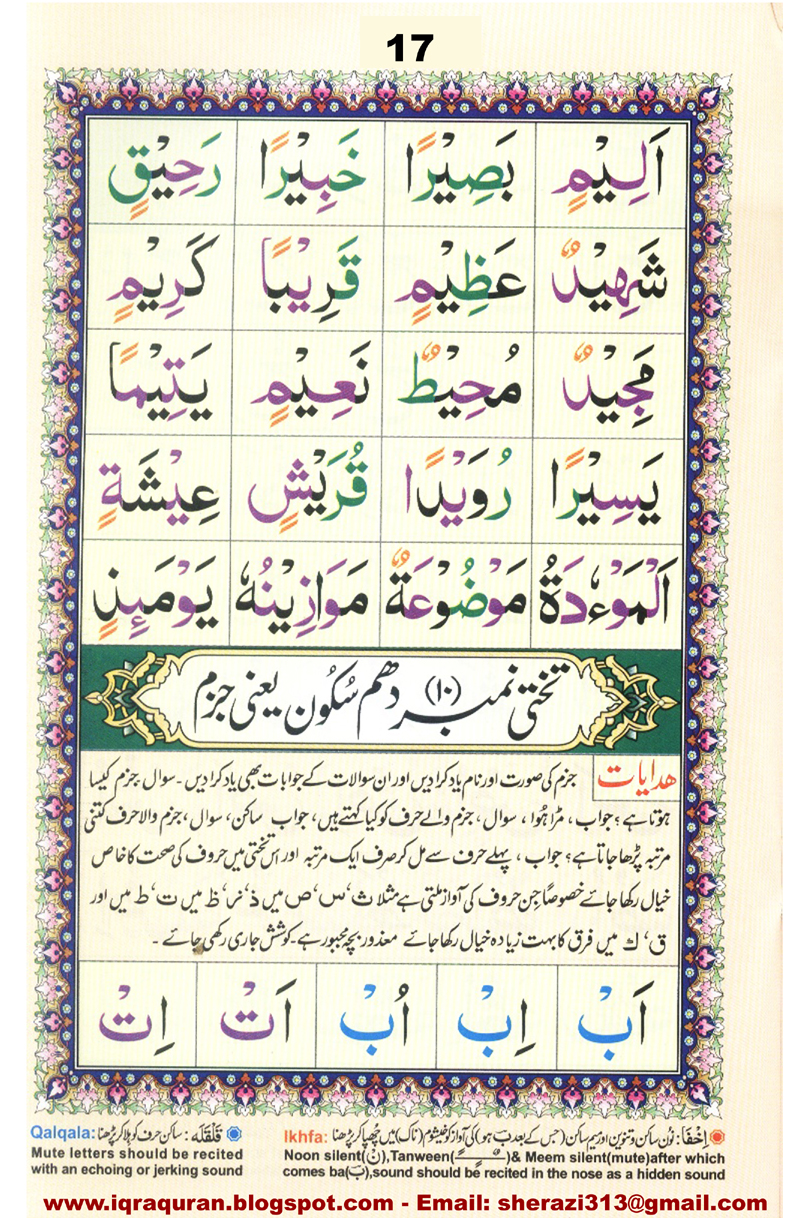 17
اَلِيْمٍ بَصِيْرًا خَبِيْرًا رَحِيْقٍ
شَهِيْدٌ عَظِيْمٍ قَرِيْبًا كَرِيْمٍ
مَجِيْدٌ مُحِيْطٌ نَعِيْمٍ يَتِيْمًا
يَسِيْرًا رُوَيْدًا قُرَيْشٍ عِيْشَةٍ
اَلْمَوْءٗدَةُ مَوْضُوْعَةٌ مَوَازِيْنُهٗ يَوْمَئِذٍ
تختی نمبر (۱۰) دھم سُکُون یعنی جزم
ھدایات جزم کی صورت اور نام یاد کرا دیں اور ان سوالات کے جوابات بھی یاد کرا دیں ۔ سوال، جزم کیسا
ہوتا ہے؟ جواب ، مڑا ہُوا ، سوال ، جزم والے حرف کو کیا کہتے ہیں، جواب ساکن، سوال، جزم والا حرف کتنی
مرتبہ پڑھا جاتا ہے؟ جواب ، پہلے حرف سے مل کر صرف ایک مرتبہ اور اس تختی میں حروف کی صحت کا خاص
خیال رکھا جائے خصوصاً جن حروف کی آواز ملتی ہے مثلاً ث‘ س‘ ص میں ذ‘ ز‘ ظ میں ت‘ ط میں اور
ق‘ ك میں فرق کا بہت زیادہ خیال رکھا جائے معذور بچہ مجبور ہے ۔ کوشش جاری رکھی جائے ۔
اَبْ اِبْ اُبْ اَتْ اِتْ
اِخْفَا: نُون ساکن و تنوین اور میم ساکن (جس کے بعد بَ ہو) کی آواز کو خیشوم (ناک) میں چُھپا کر پڑھنا Ikhfa:
Noon silent(نْ),Tanween(ـًـٍـٌ)& Meem silent(mute)after which
comes ba(بَ),sound should be recited in the nose as a hidden sound
قَلْقَلَه : ساکن حرف کو ہلا کر پڑھنا Qalqala:
Mute letters should be recited
with an echoing or jerking sound
www.iqraquran.blogspot.com - Email: sherazi313@gmail.com